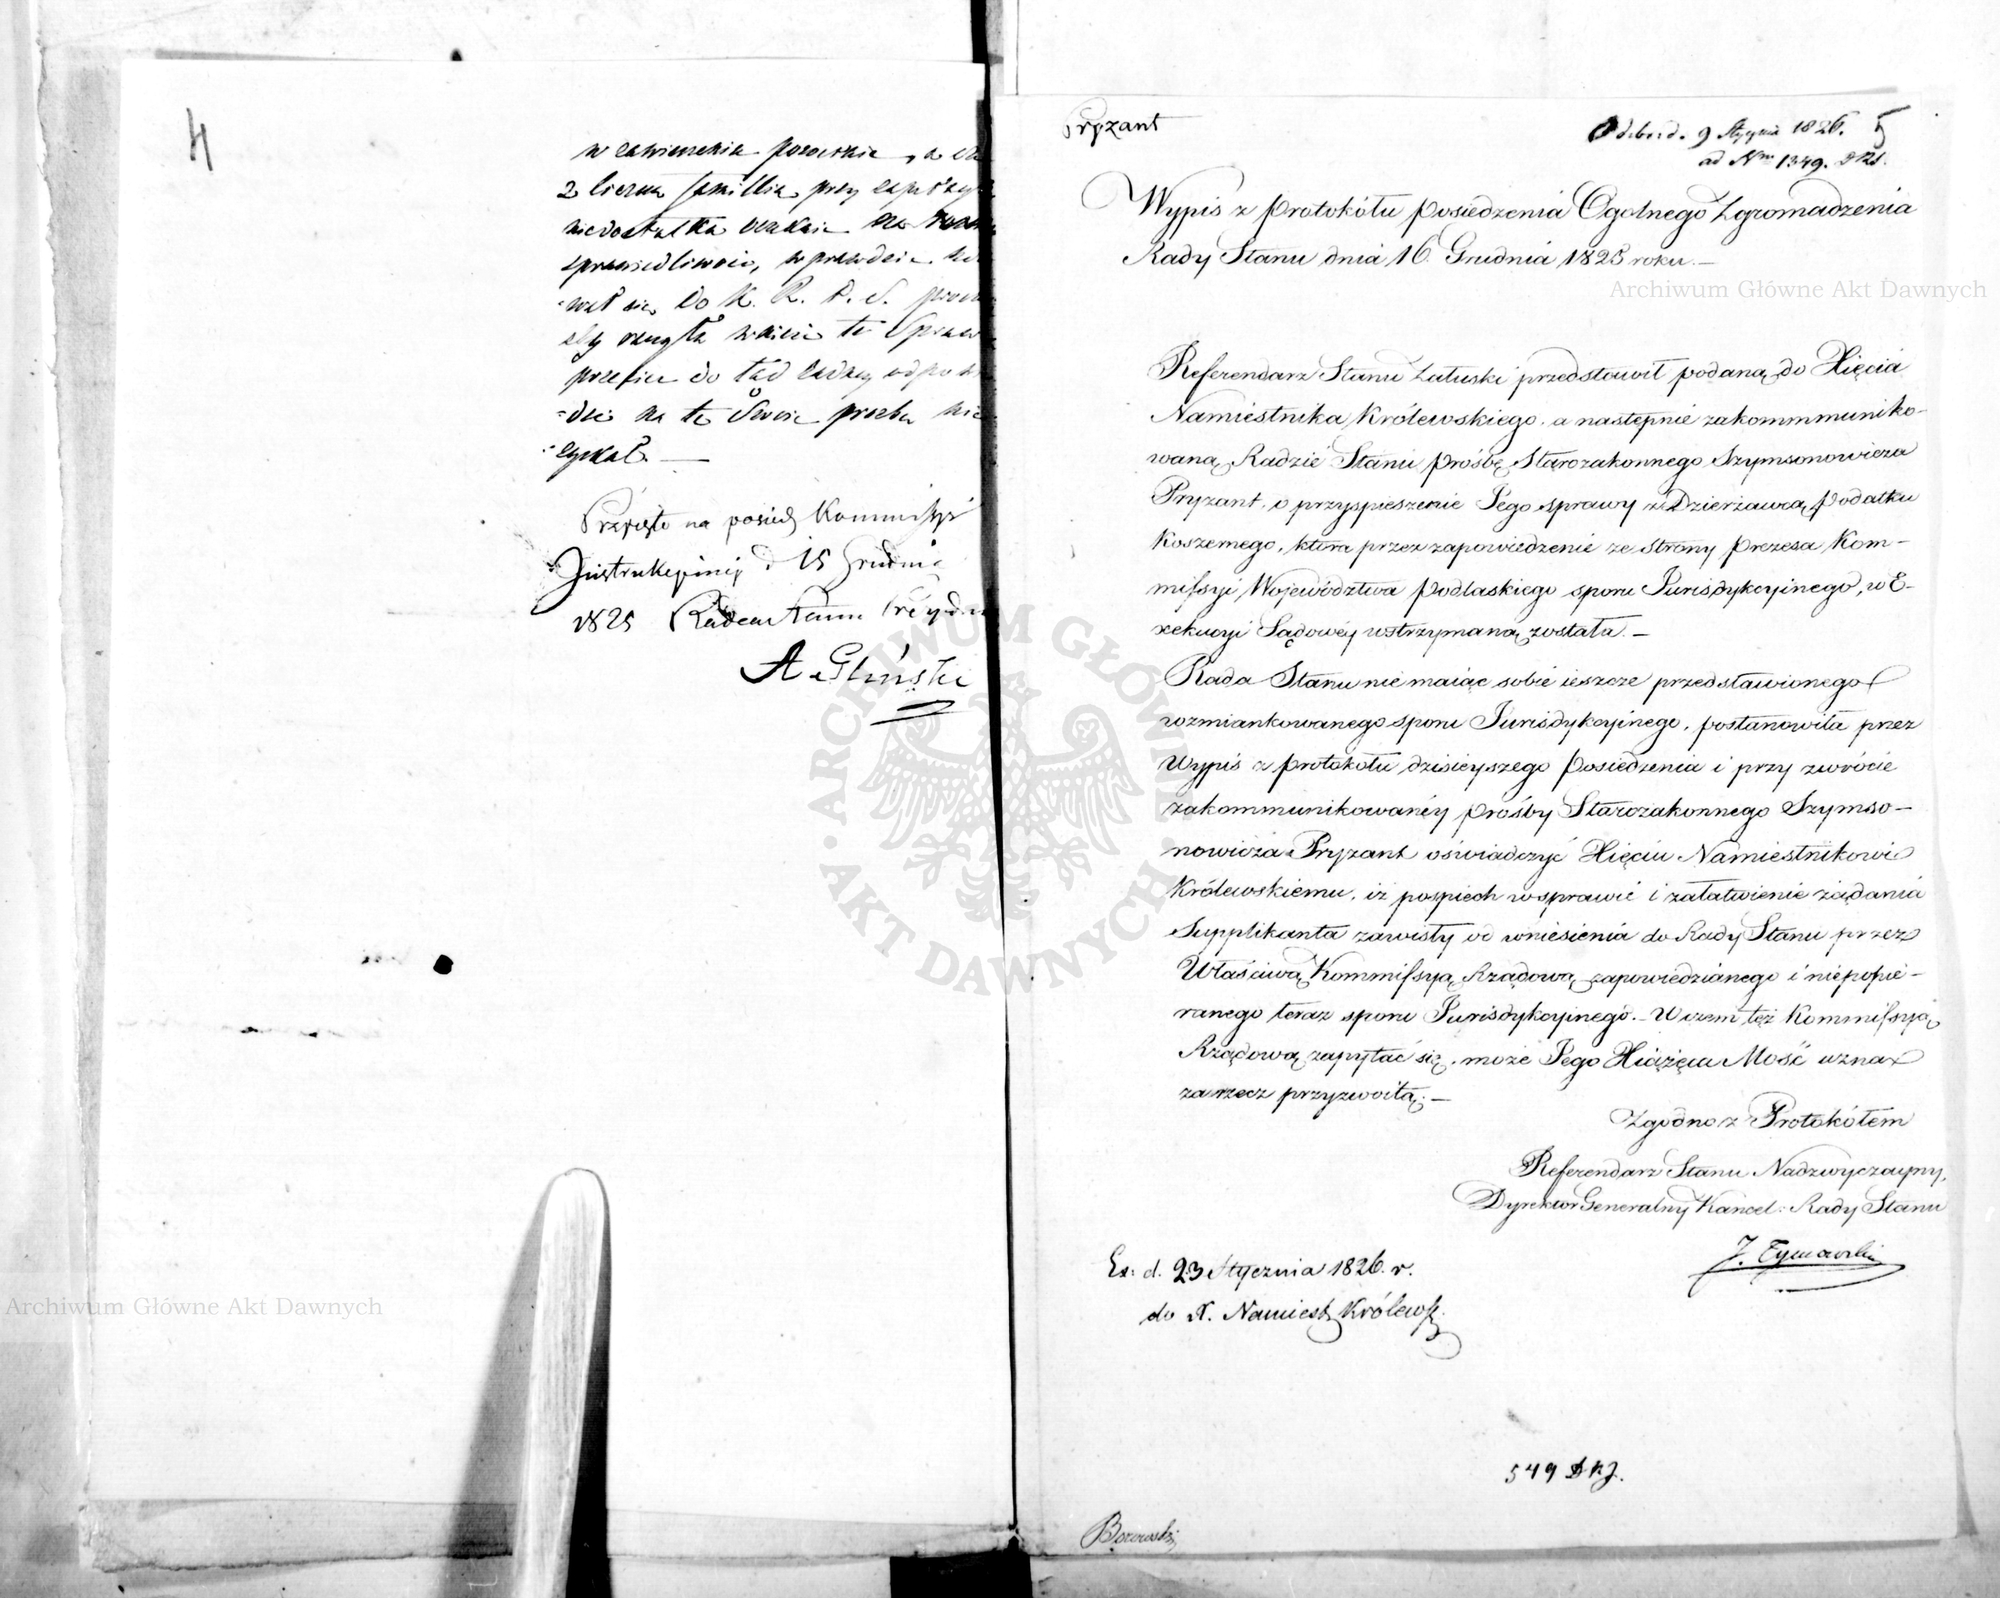 4
w zawieszenia pozostaie, a
z liczną familią przy
niedostatku
sprawiedliwości, wprawdzie
do K. R. P. S.
aby raczyła w
przecież do tąd żadney odpowie
=dzi na te swoie prośbe nie
=zyskał. —
Przyięto na posied Kommissyi
Instrukcyiney d 15 Grudnia
1825 Radca Stanu
A Gliński
Pryzant
Odebrd. 9 Stycznia 1826. 5
ad Nrm 1349.
Wypis z Protokółu Posiedzenia Ogolnego Zgromadzenia
Rady Stanu dnia 16. Grudnia 1825 roku. —
Referendarz Stanu Załuski przedstawił podaną do Xięcia
Namiestnika Królewskiego, a następnie zakommmuniko-
waną Radzie Stanu prośbę Starozakonnego Szymsonowicza
Pryzant, o przyspieszenie Jego sprawy z Dzierżawcą podatku
Koszernego, która przez zapowiedzenie ze strony Prezesa Kom-
missyi Województwa Podlaskiego sporu Jurisdykcyinego, w E-
xekucyi Sądowéy wstrzymaną została. —
Rada Stanu nie maiąc sobie ieszcze przedstawionego
wzmiankowanego sporu Jurisdykcyinego, postanowiła przez
Wypis z Protokołu dzisieyszego Posiedzenia i przy zwrócie
zakommunikowanéy prośby Starozakonnego Szymso-
nowicza Pryzant oświadczyć Xięciu Namiestnikowi
Królewskiemu, iż pospiech w sprawie i załatwienie żądania
Supplikanta zawisły od wniesienia do Rady Stanu przez
Właściwą Kommissyą Rządową zapowiedzianego i niepopie-
ranego teraz sporu Jurisdykcyinego. — W czem téż Kommissyą
Rządową zapytać się, może Jego Xiążęca Mość uzna
za rzecz przyzwoitą. —
Zgodno z Protokółem
Referendarz Stanu Nadzwyczayny,
Dyrektor Generalny Kancel: Rady Stanu
J. Tymowski
Ex: d. 23 Stycznia 1826. r.
do X. Namiest Królewsk.
549 DKJ.
Borowski
Archiwum Główne Akt Dawnych
Archiwum Główne Akt Dawnych
ARCHIWUM GŁÓWNE · AKT DAWNYCH ·